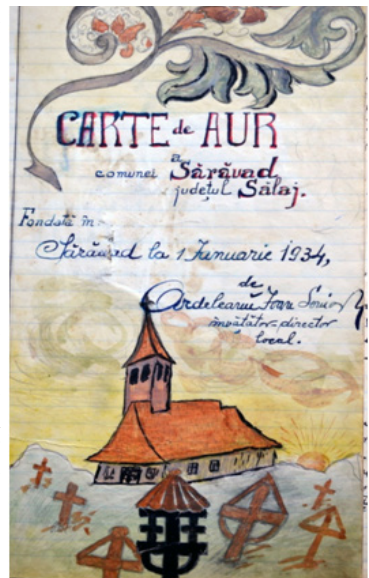 CARTE de AUR
a
comunei Sărăvad
județul Sălaj.
Fondată în
Sărăvad la 1 Ianuarie 1934,
de
Ardeleanu Ioan Senior
învățător-director
local.